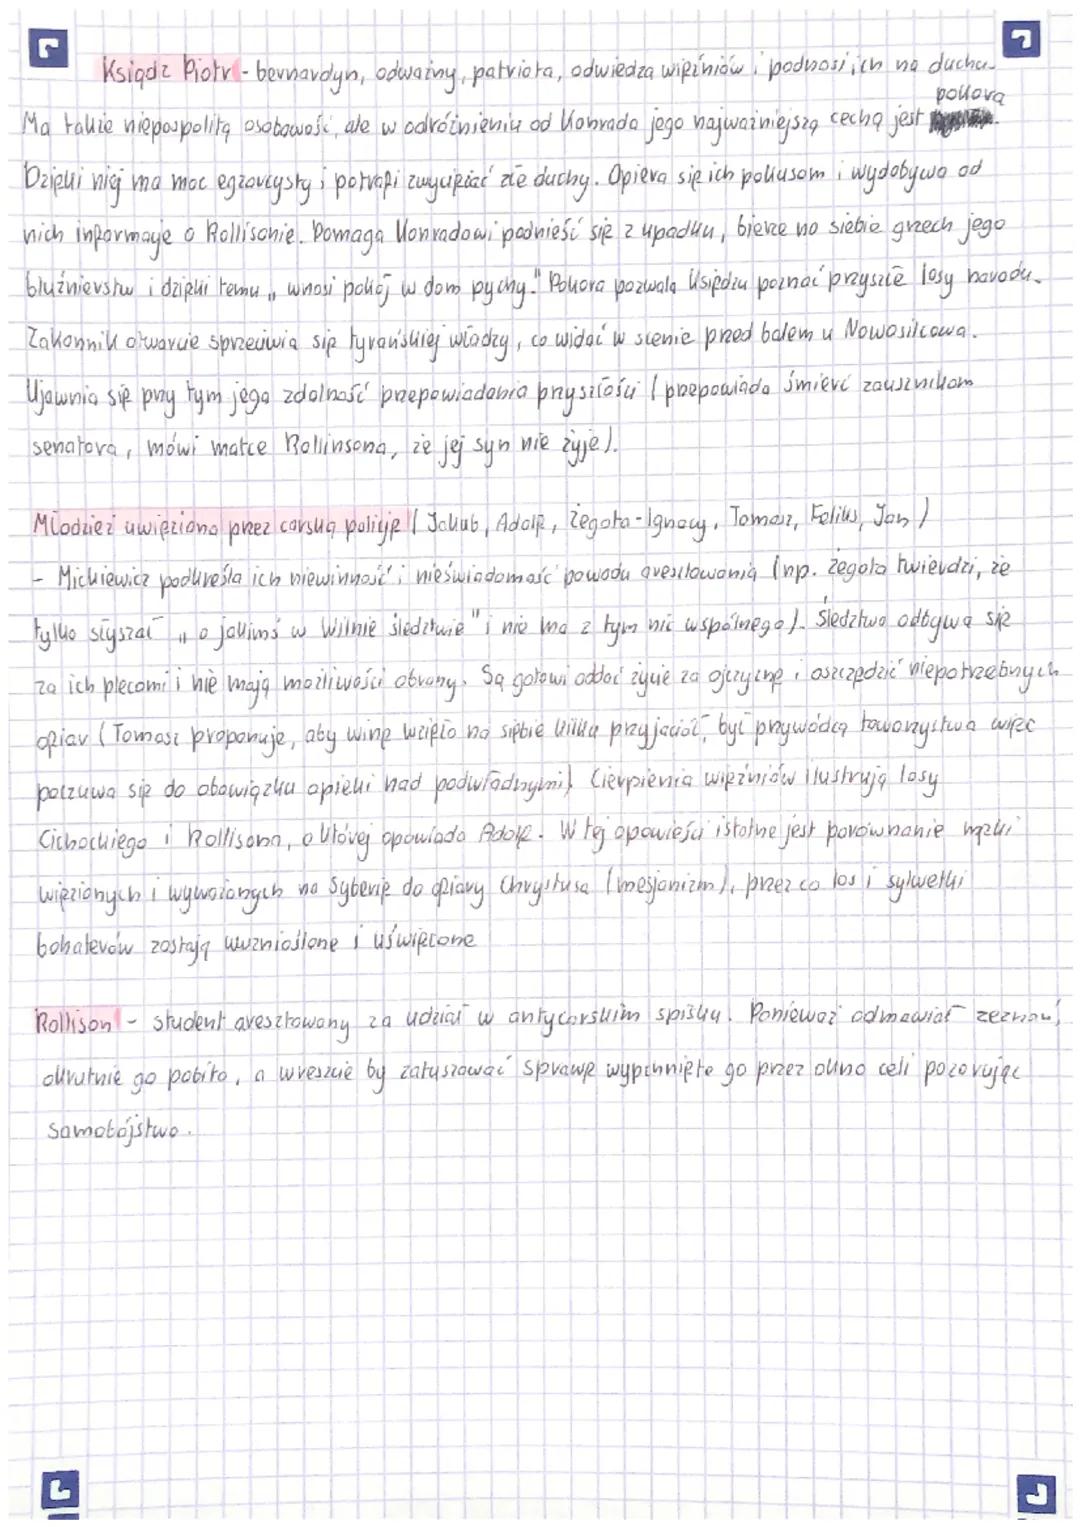 Ksiądz Piotr - bernardyn, odważny, patriota, odwiedza więźniów i podnosi ich na duchu.
pokora
Ma także niepospolitą osobowość, ale w odróżnieniu od Konrada jego najważniejszą cechą jest
Dzięki niej ma moc egzorcysty i potrafi zwyciężać złe duchy. Opiera się ich pokusom i wydobywa od
nich informacje o Rollisonie. Pomaga Konradowi podnieść się z upadku, bierze na siebie grzech jego
bluźnierstw i dzięki temu „wnosi pokój w dom pychy." Pokora pozwala księdzu poznać przyszłe losy narodu.
Zakonnik otwarcie sprzeciwia się tyrańskiej władzy, co widać w scenie przed balem u Nowosilcowa.
Ujawnia się przy tym jego zdolność przepowiadania przyszłości (przepowiada śmierć zausznikom
senatora, mówi matce Rollinsona, że jej syn nie żyje).
Młodzież uwięziona przez carską policję (Jakub, Adolf, Żegota-Ignacy, Tomasz, Feliks, Jan)
- Mickiewicz podkreśla ich niewinność i nieświadomość powodu aresztowania (np. Żegota twierdzi, że
tylko słyszał „o jakimś w Wilnie śledztwie" i nie ma z tym nic wspólnego). Śledztwo odbywa się
za ich plecami i nie mają możliwości obrony. Są gotowi oddać życie za ojczyznę i oszczędzić niepotrzebnych
ofiar (Tomasz proponuje, aby winę wzięło na siebie kilku przyjaciół, był przywódcą towarzystwa więc
poczuwa się do obowiązku opieki nad podwładnymi). Cierpienia więźniów ilustrują losy
Cichockiego i Rollisona, o której opowiada Adolf. W tej opowieści istotne jest porównanie męki
więzionych i wywożonych na Syberię do ofiary Chrystusa (mesjanizm), przez co los i sylwetki
bohaterów zostają wzniosłone i uświęcone
Rollison - student aresztowany za udział w antycarskim spisku. Ponieważ odmawiał zeznań,
okrutnie go pobito, a wreszcie by zatuszować sprawę wypchnięte go przez okno celi pozorując
samobójstwo.